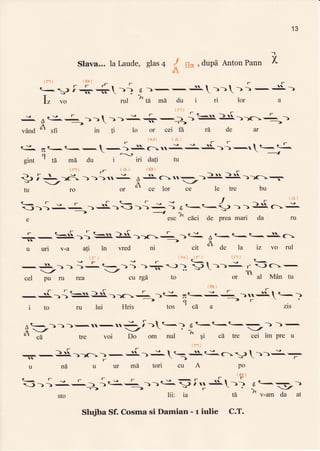 13
Slava... la Laude, glas 4 , după Anton Pann
Iz vo rul tă mă du i ri lor a
vând sfi in ți lo or cei fă ră de ar
gint tă mă du i iri dați tu
tu ro or ce lor ce le tre bu
e esc căci de prea mari da ru
u uri v-a ați în vred ni cit de la iz vo rul
cel pu ru rea cu rgă to or al Mân tu
i to ru lui Hris tos că a zis
că tre voi Do om nul și că tre cei îm pre u
u nă u ur mă tori cu A po
sto lii: ia tă v-am da at
Slujba Sf. Cosma si Damian - 1 iulie C.T.